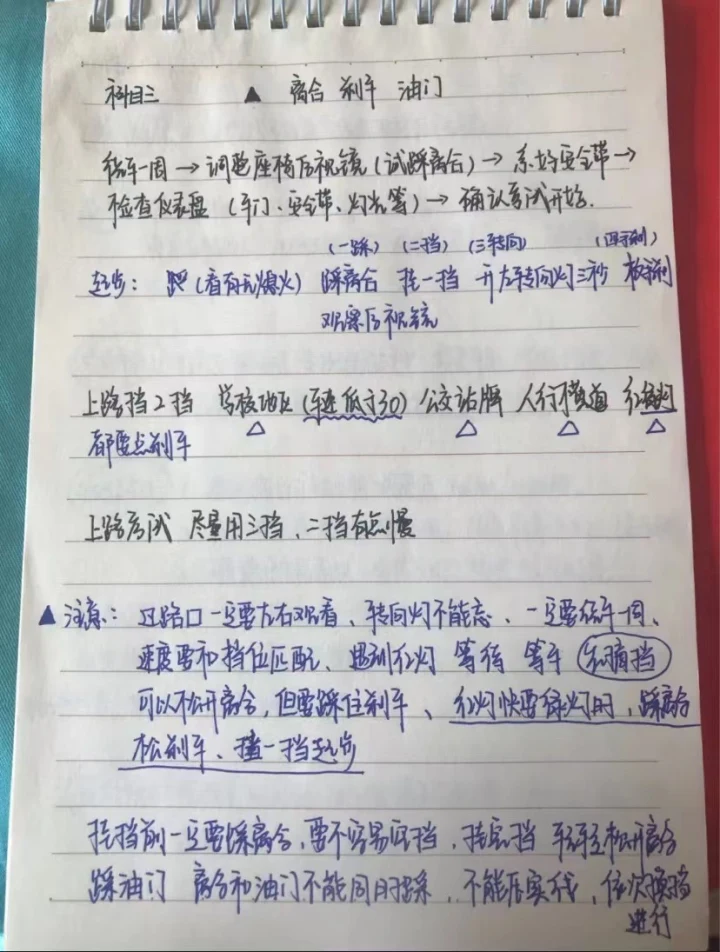 科目三 ▲ 离合 刹车 油门
绕车一周 → 调整座椅后视镜(试踩离合) → 系好安全带 →
检查仪表盘 (车门、安全带、灯光等) → 确认考试开始.
(一踩) (二挡) (三转向) (四手刹)
起步: (看有无熄火) 踩离合 挂一挡 开左转向灯三秒 放手刹
观察后视镜
上路挡2挡 学校地区 (车速低于30) 公交站牌 人行横道 红绿灯
都要点刹车
上路考试 尽量用三挡、二挡有点慢
▲ 注意: 过路口一定要左右观看、转向灯不能忘、一定要绕车一周、
速度要和挡位匹配、遇到红灯 等待 等车 摘挡
可以松开离合,但要踩住刹车、红灯快要绿灯时、踩离合
松刹车、挂一挡起步
挂挡前一定要踩离合,要不容易空挡,挂完挡 轻轻松开离合
踩油门 离合和油门不能同时踩、不能压实线,依次换挡
进行